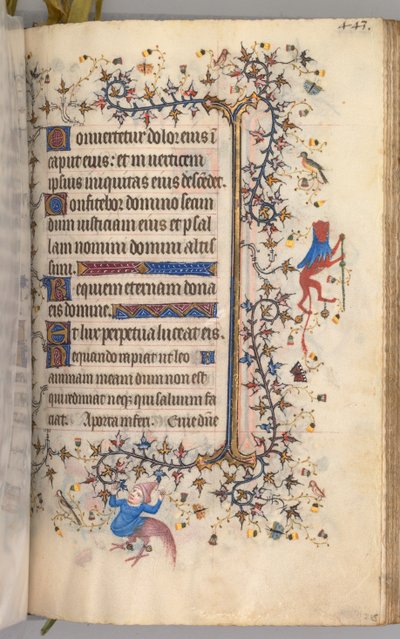 447.
Convertetur dolor eius ī
caput eius: et in verticem
ipsius iniquitas eius descēdet.
Confitebor domino secun
dum iusticiam eius et psal
lam nomini domini altis
simi.
Requiem eternam dona
eis domine.
Et lux perpetua luceat eis.
Nequando rapiat ut leo
animam meam dum non est
qui redimat neqȝ qui saluum fa
ciat. A porta inferi. Erue dñe